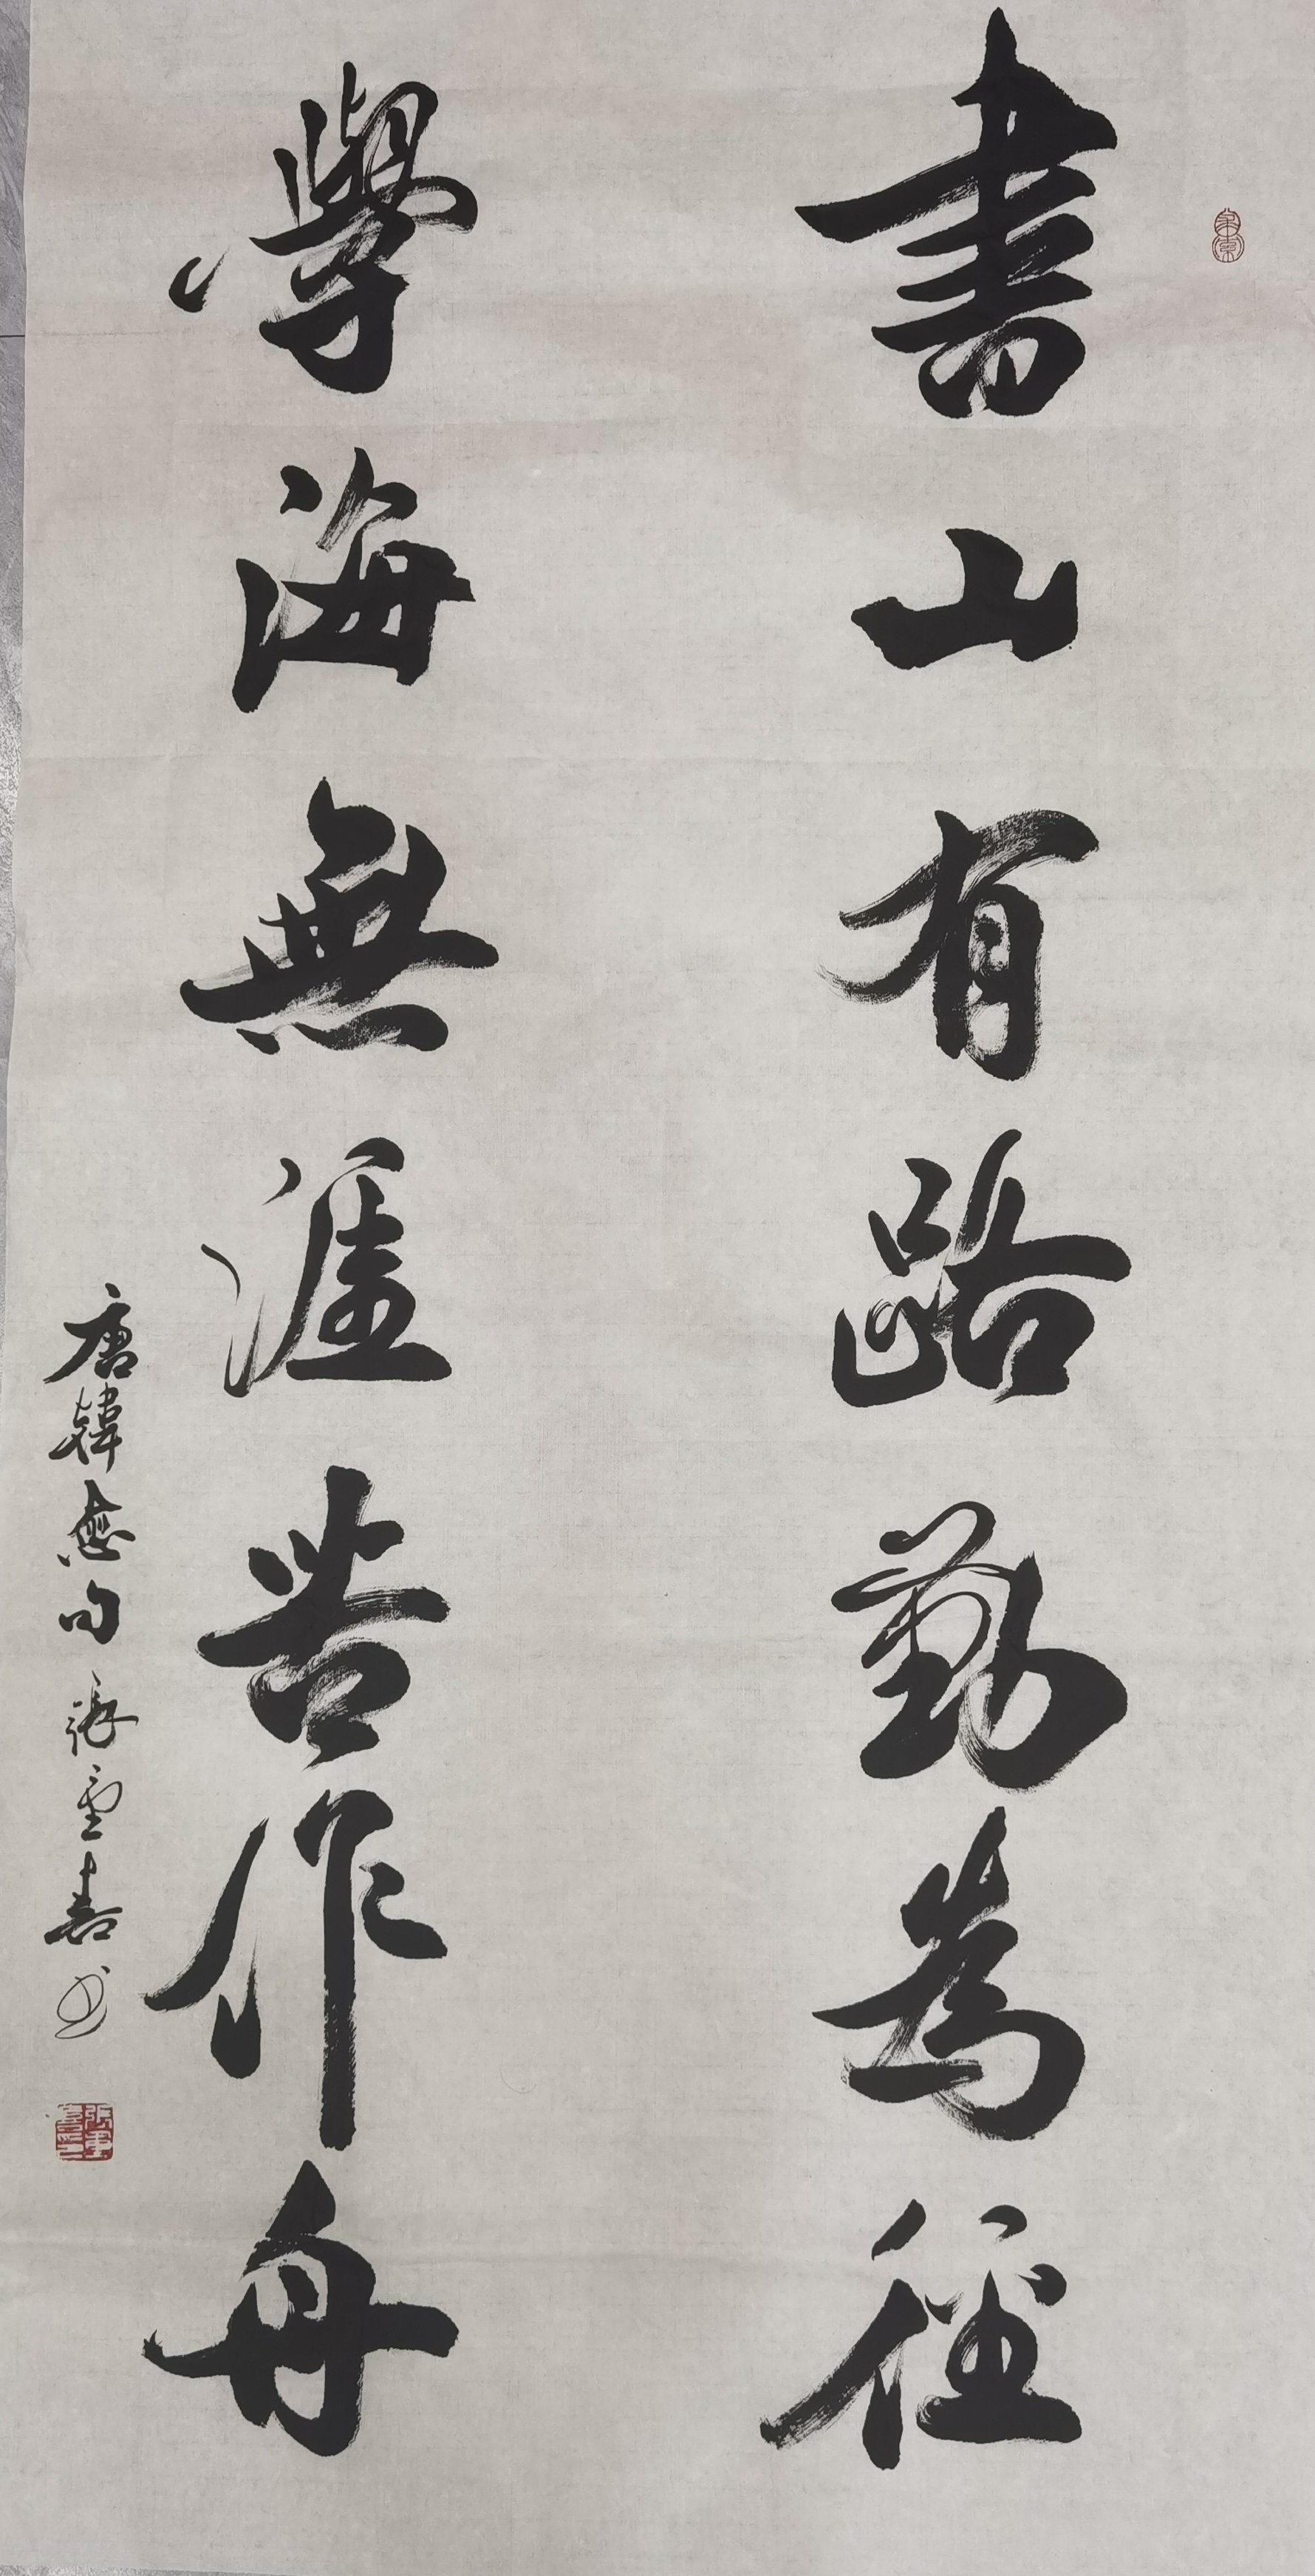 書山有路勤為徑
學海無涯苦作舟
唐韓愈句張重喜书